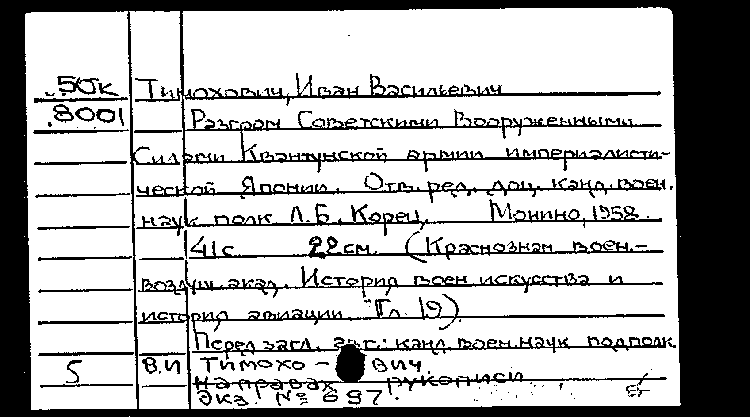 50к Тимохович, Иван Васильевич
8001 Разгром Советскими Вооруженными
Силами Квантунской армии империалисти-
ческой Японии. Отв. ред. доц. канд. воен.
наук полк Л.Б. Корец. Монино, 1958.
41с 29 см. (Краснознам воен.-
воздуш. акад. История воен искусства и
история авиации. Гл. 19)
Перед загл. авт.: канд. воен. наук подполк.
5 В.И Тимохо- вич.
на правах рукописи
Экз. № 697.